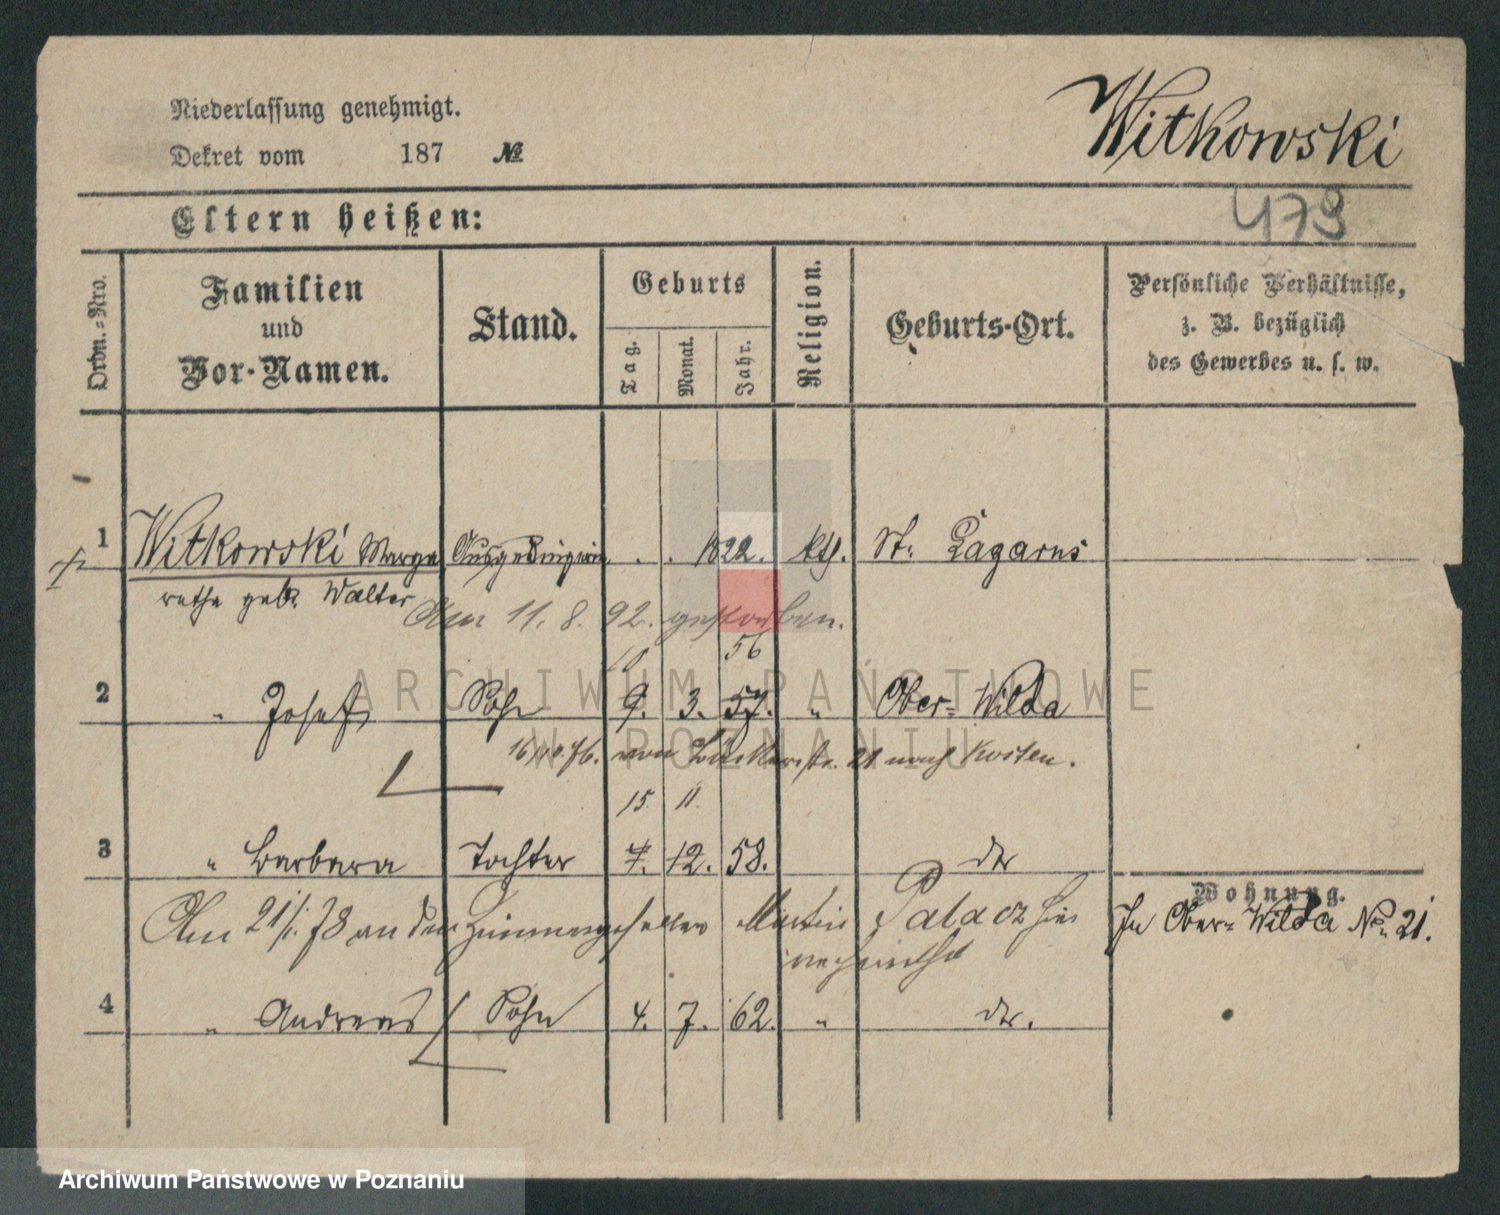 Niederlassung genehmigt.
Witkowski
Dekret vom 187 №
Eltern heißen:
479
Ordn.-Nro.
Familien
und
Vor-Namen.
Stand.
Geburts
Tag.
Monat.
Jahr.
Religion.
Geburts-Ort.
Persönliche Verhältnisse,
z. B. bezüglich
des Gewerbes u. s. w.
1 Witkowski Marga Ausgedingerin . . 1822. kth. St. Lazarus
rethe geb. Walter
Am 11. 8. 92. gestorben.
56
2 " Josef Sohn 9. 3. 57. " Ober-Wilda
76. von 21 nach Kosten.
15. 11.
3 " Barbara Tochter 7. 12. 58. do
Wohnung.
Am 21/1. 78 an den Zimmergesellen Martin Palacz hier
In Ober-Wilda No. 21.
verheirathet
4 " Andreas Sohn 4. 7. 62. " do.
ARCHIWUM PAŃSTWOWE
W POZNANIU
Archiwum Państwowe w Poznaniu